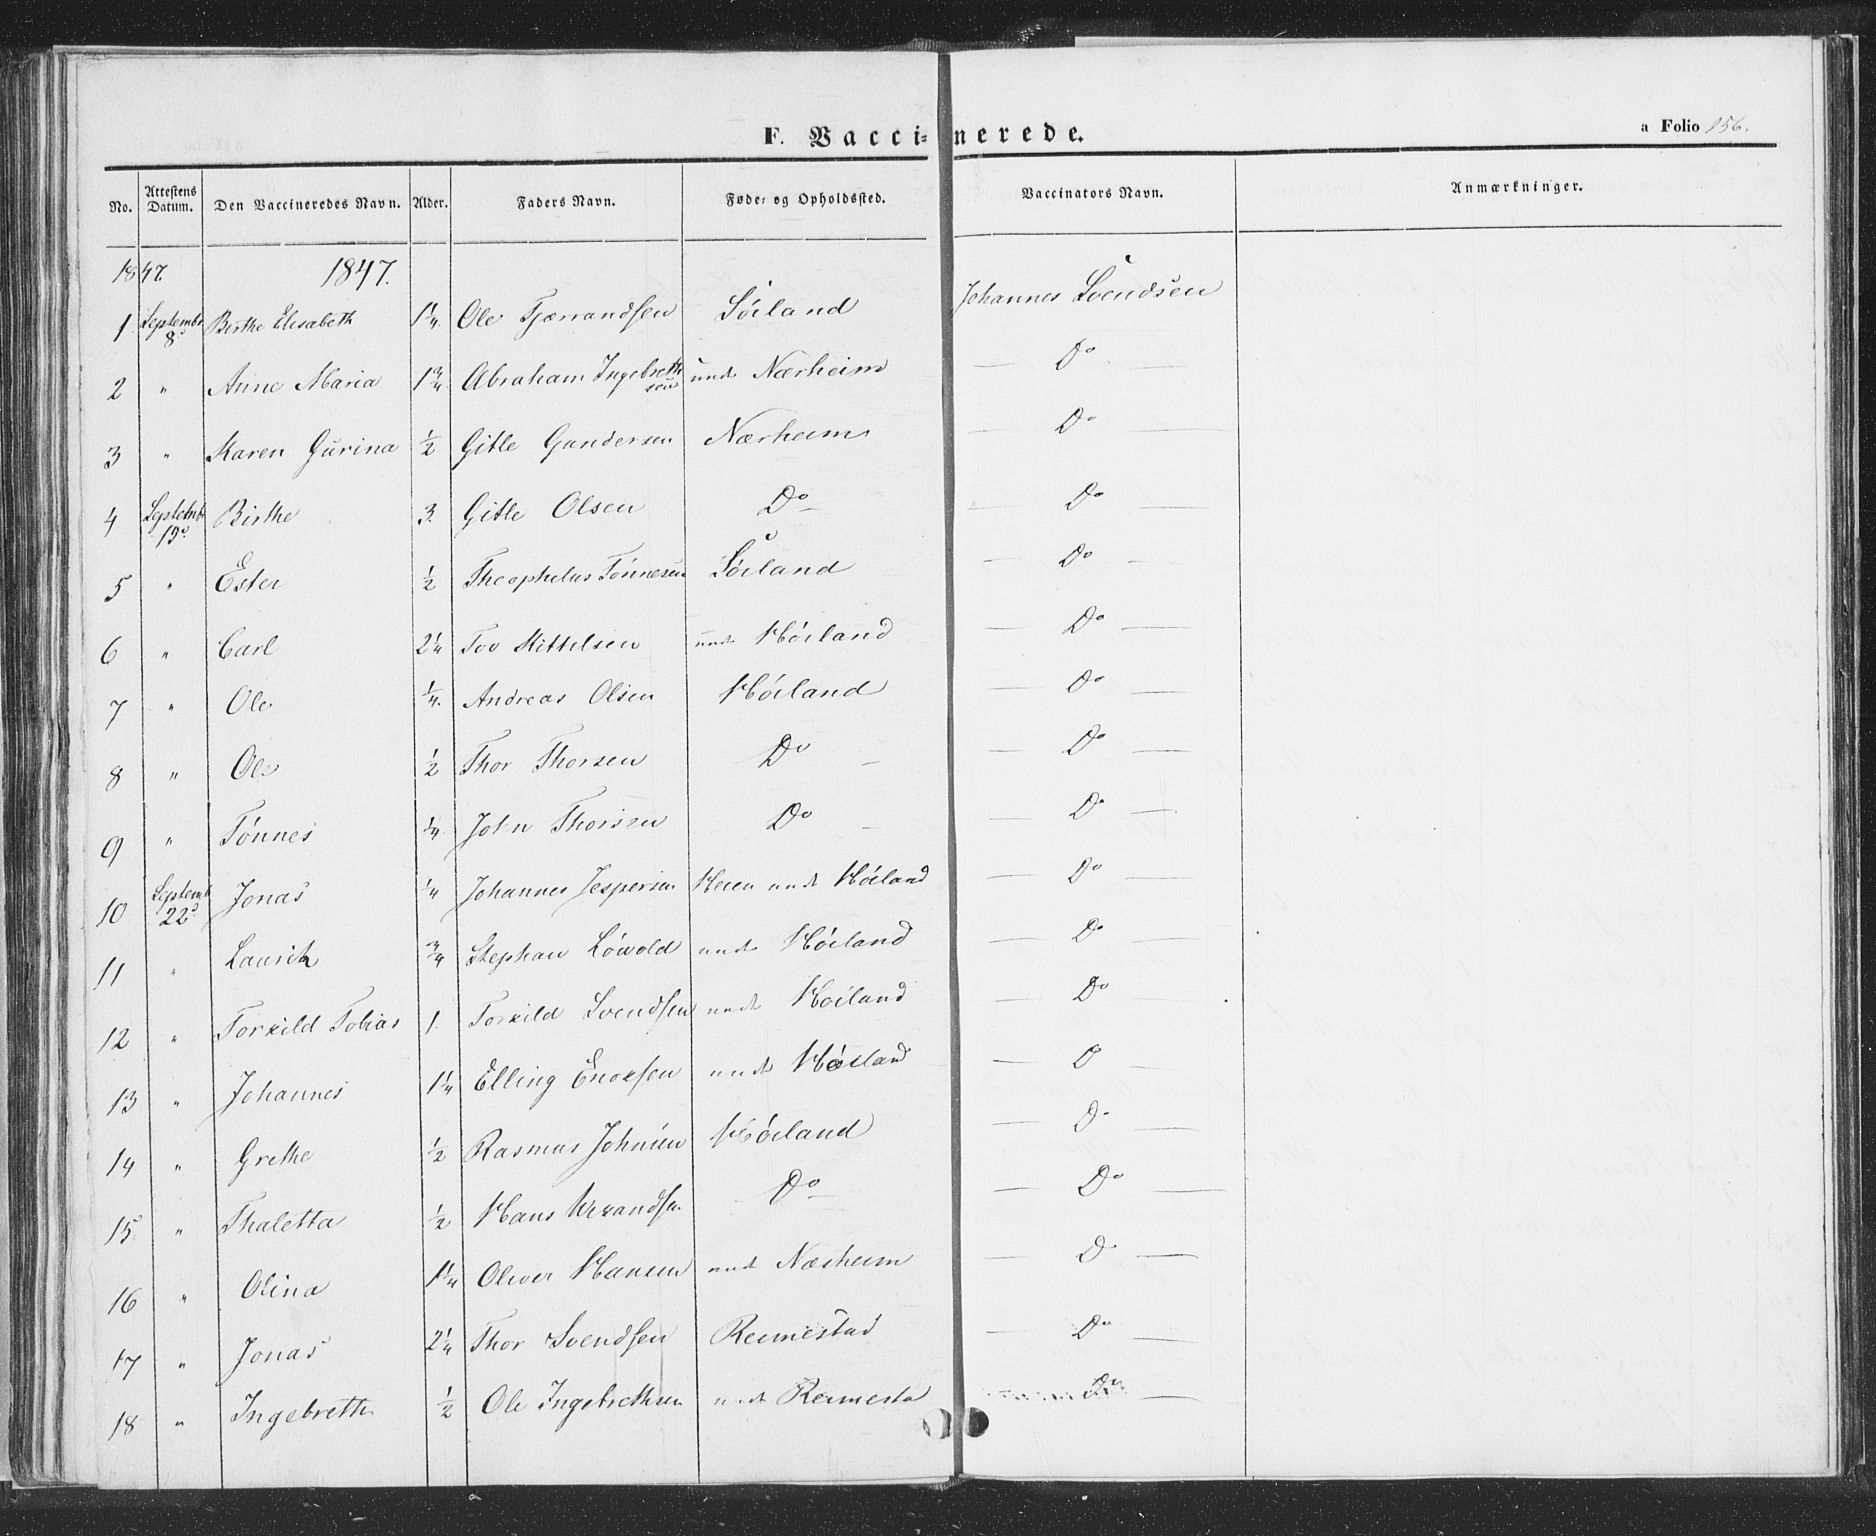 F. Vaccinerede.
a Folio 156.
No. Attestens Datum. Den Vaccineredes Navn. Alder. Faders Navn. Føde- og Opholdssted. Vaccinators Navn. Anmærkninger.
1847. 1847.
1. Septembr 8d Birthe Elisabeth 1 1/4. Ole Tjerrandsen Söiland Johannes Svendsen
2 " Anne Maria 1 3/4. Abraham Ingebrethsen und Nærheim — Do —
3 " Karen Gurina 1/2 Gitle Gundersen Nærheim — Do —
4 Septemb 15d Birthe 3. Gitle Olsen Do — — Do —
5 " Ester 1/2 Theophelus Tönnesen Söiland — Do —
6 " Carl 2 1/4 Tov Kittelsen und Höiland — Do —
7 " Ole 1/4. Andreas Olsen Höiland — Do —
8 " Ole 1/2 Thor Thorsen Do — — Do —
9 " Tönnes 1/4. John Thorsen Do — — Do —
10 Septemb 22d Jonas 1/4 Johannes Jespersen und Höiland — Do —
11 " Lauritz 3/4 Stephan Lövold und Höiland — Do —
12 " Torkild Tobias 1. Torkild Svendsen und Höiland — Do —
13 " Johannes 1 1/4 Elling Enoksen und Höiland — D —
14 " Grethe 1/2 Rasmus Johnsen Höiland — Do —
15 " Thaletta 1/2 Hans Do — — Do —
16 " Olina 1 1/4 Oliver Hansen und Nærheim — Do —
17 " Jonas 2 1/4 Thor Svendsen Reimestad — Do —
18 " Ingebreth 1/2 Ole Ingebrethsen und Reimesta Do —